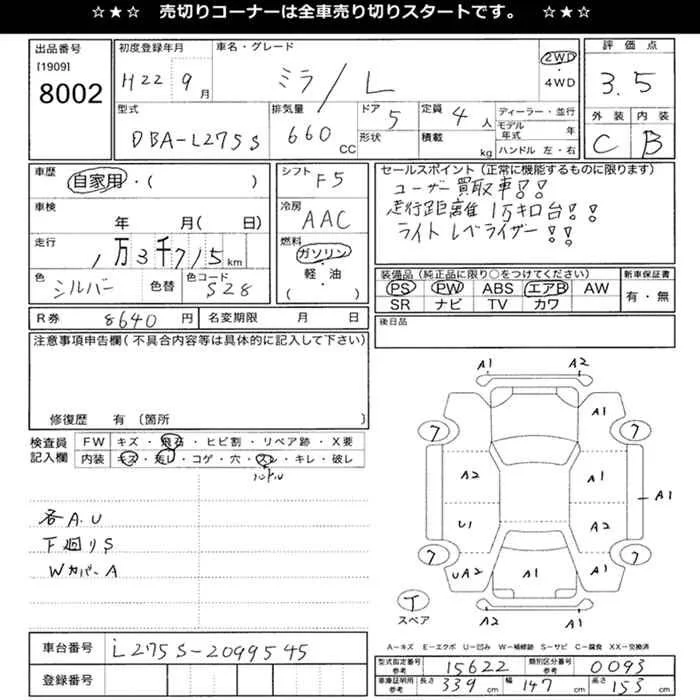 ☆★☆ 売切りコーナーは全車売り切りスタートです。 ☆★☆
出品番号 [1909] 8002
初度登録年月 H22 9月
車名・グレード ミラ/L
2WD・4WD
評価点 3.5
型式 DBA-L275S
排気量 660 CC
ドア 5
形状
定員 4人
積載 kg
ディーラー・並行
モデル年式 年
ハンドル 左・右
外装 C
内装 B
車歴 自家用・( )
車検 年 月( 日)
走行 1万3千715km
色 シルバー 色替
色コード S28
シフト F5
冷房 AAC
燃料 ガソリン・軽・油・( )
セールスポイント(正常に機能するものに限ります)
ユーザー買取車!!
走行距離 1万キロ台!!
ライト レベライザー!!
装備品(純正品に限り○をつけてください)
PS PW ABS エアB AW
SR ナビ TV カワ
新車保証書 有・無
R券 8640円
名変期限 月 日
後日品
注意事項申告欄(不具合内容等は具体的に記入して下さい)
修復歴 有〔箇所 〕
検査員記入欄
FW キズ・飛石・ヒビ割・リペア跡・X要
内装 キズ・汚レ・コゲ・穴・スレ・キレ・破レ
ハンドル
各A.U
下廻りS
WカバーA
A1 A2
A1
7 7
A2 A1
A1
U1 A2
7 7
UA2 A1 A1
T スペア
A2 A1
A-キズ E-エクボ U-凹み W-補修跡 S-サビ C-腐食 XX-交換済
車台番号 L275S-2099545
登録番号
型式指定番号 参考 15622
類別区分番号 参考 0093
車庫証明用 参考 長さ 339cm 幅 147cm 高さ 153cm